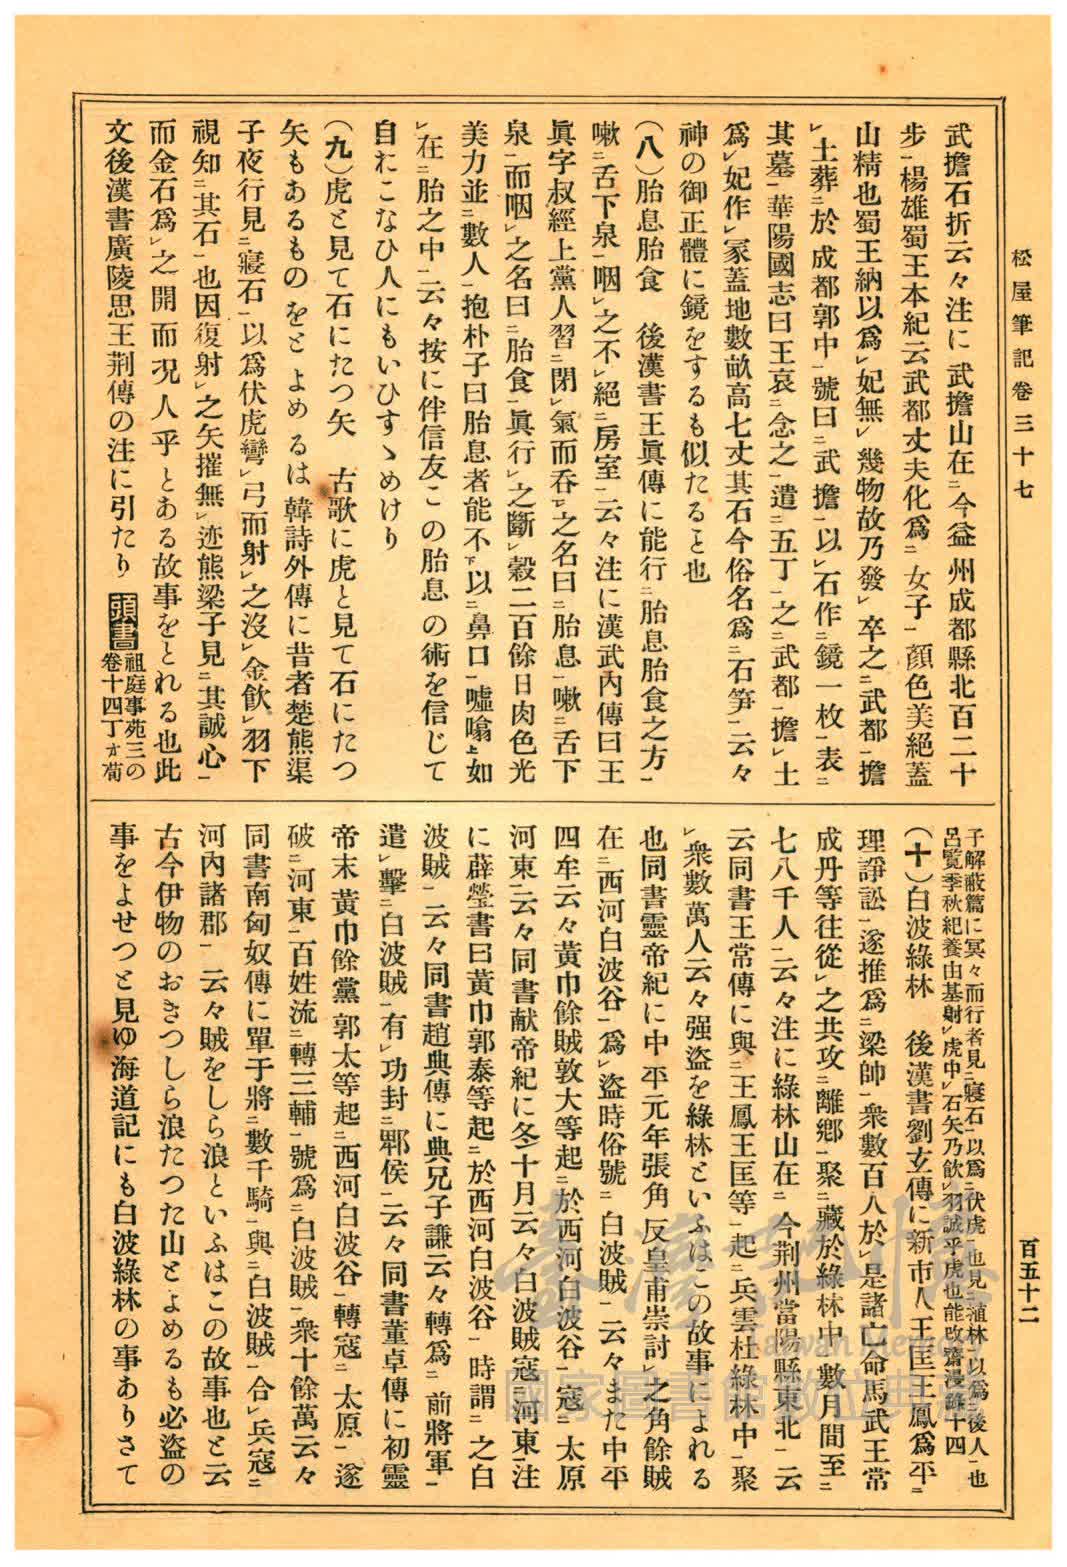 松屋筆記卷三十七
百五十二
武擔石折云々注に 武擔山在ニ今益州成都縣北百二十
步一楊雄蜀王本紀云武都丈夫化爲ニ女子一顏色美絕蓋
山精也蜀王納以爲レ妃無レ幾物故乃發レ卒之ニ武都一擔
レ土葬ニ於成都郭中一號曰ニ武擔一以レ石作ニ鏡一枚一表ニ
其墓一華陽國志曰王哀ニ念之一遣ニ五丁一之ニ武都一擔レ土
爲レ妃作レ冢蓋地數畝高七丈其石今俗名爲ニ石笋一云々
神の御正體に鏡をするも似たること也
(八)胎息胎食 後漢書王眞傳に能行ニ胎息胎食之方一
嗽ニ舌下泉一咽レ之不レ絕ニ房室一云々注に漢武內傳曰王
眞字叔經上黨人習ニ閉レ氣而呑レ之名曰ニ胎息一嗽ニ舌下
泉一而咽レ之名曰ニ胎食一眞行レ之斷レ穀二百餘日肉色光
美力並ニ數人一抱朴子曰胎息者能不下以ニ鼻口一噓噏上如
レ在ニ胎之中一云々按に伴信友この胎息の術を信じて
自おこなひ人にもいひすゝめけり
(九)虎と見て石にたつ矢 古歌に虎と見て石にたつ
矢もあるものをとよめるは韓詩外傳に昔者楚熊渠
子夜行見ニ寢石一以爲伏虎彎レ弓而射レ之沒レ金飮レ羽下
視知ニ其石一也因復射レ之矢摧無レ迹熊渠子見ニ其誠心一
而金石爲レ之開而況人乎とある故事をとれる也此
文後漢書廣陵思王荆傳の注に引たり 頭書 祖庭事苑三の
卷十四丁ォ荀
子解蔽篇に冥々而行者見ニ寢石一以爲ニ伏虎一也見ニ植林一以爲ニ後人一也
呂覽季秋紀養由基射レ虎中レ石矢乃飮レ羽誠乎虎也能改齋漫錄十四
(十)白波綠林 後漢書劉玄傳に新市人王匡王鳳爲平ニ
理諍訟一遂推爲ニ梁帥一衆數百人於レ是諸亡命馬武王常
成丹等往從レ之共攻ニ離鄕一聚ニ藏於綠林中一數月間至ニ
七八千人一云々注に綠林山在ニ今荆州當陽縣東北一云
云同書王常傳に與ニ王鳳王匡等一起ニ兵雲杜綠林中一聚
レ衆數萬人云々强盜を綠林といふはこの故事によれる
也同書靈帝紀に中平元年張角反皇甫崇討レ之角餘賊
在ニ西河白波谷一爲レ盜時俗號ニ白波賊一云々また中平
四年云々黃巾餘賊敦大等起ニ於西河白波谷一寇ニ太原
河東一云々同書献帝紀に冬十月云々白波賊寇ニ河東一注
に薜瑩書曰黃巾郭泰等起ニ於西河白波谷一時謂ニ之白
波賊一云々同書趙典傳に典兄子謙云々轉爲ニ前將軍一
遣レ擊ニ白波賊一有レ功封ニ郫侯一云々同書董卓傳に初靈
帝末黃巾餘黨郭太等起ニ西河白波谷一轉寇ニ太原一遂
破ニ河東一百姓流ニ轉三輔一號爲ニ白波賊一衆十餘萬云々
同書南匈奴傳に單于將ニ數千騎一與ニ白波賊一合レ兵寇ニ
河內諸郡一云々賊をしら浪といふはこの故事也と云
古今伊物のおきつしら浪たつた山とよめるも必盜の
事をよせつと見ゆ海道記にも白波綠林の事ありさて
臺灣記憶
Taiwan Memory
國家圖書館數位典藏